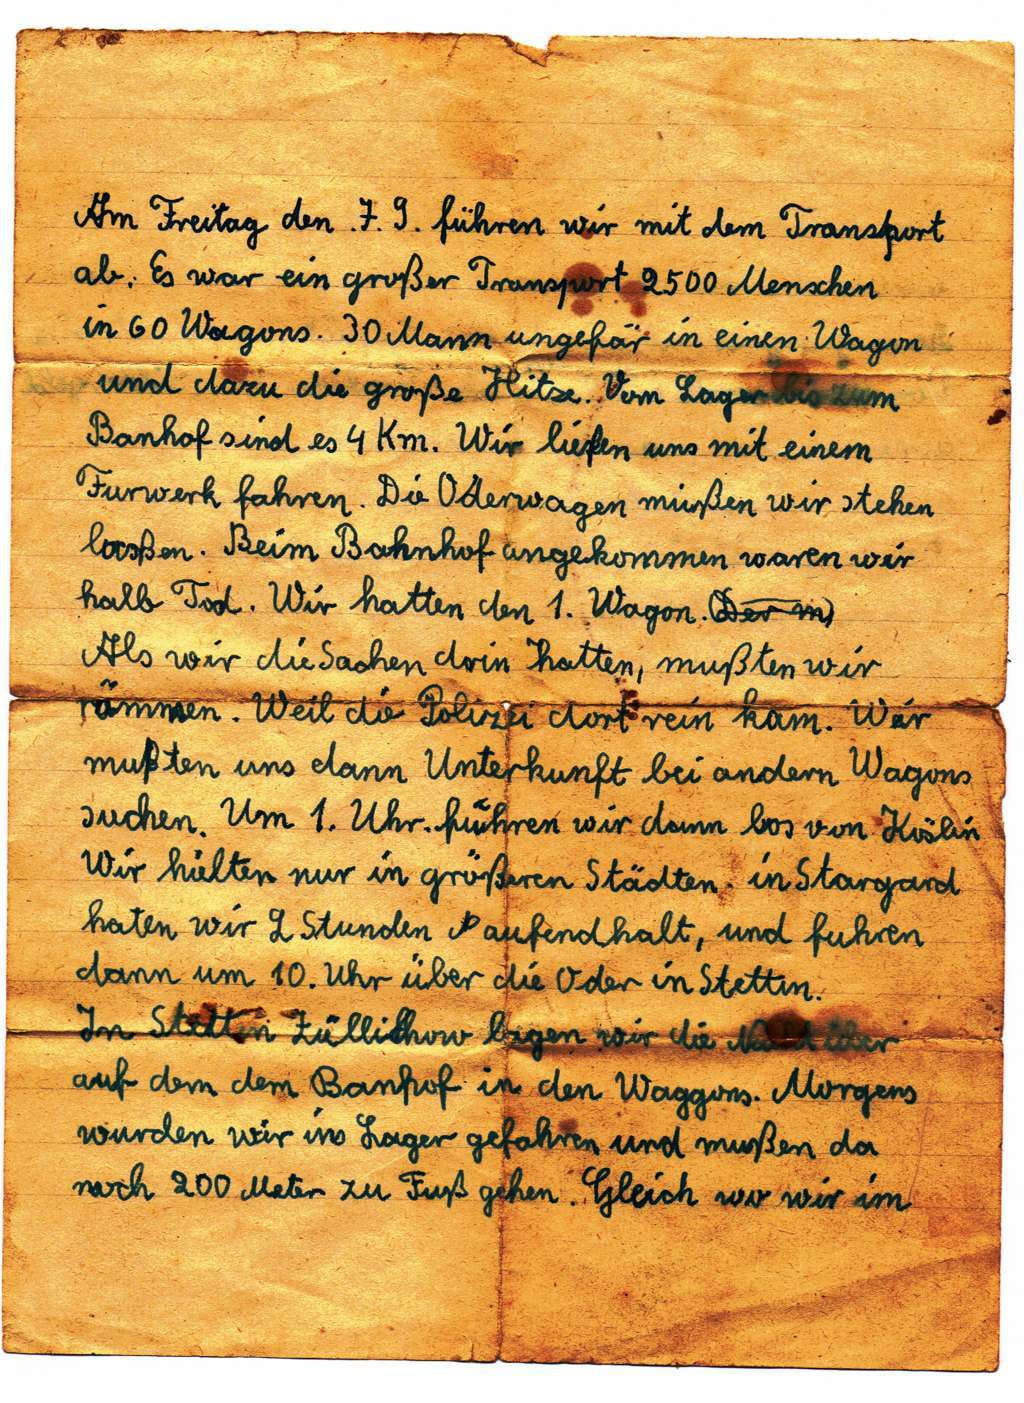 Am Freitag den 7. 9. führen wir mit dem Transport
ab. Es war ein großer Transport 2500 Menschen
in 60 Wagons. 30 Mann ungefär in einen Wagon
und dazu die große Hitze. Vom Lager bis zum
Banhof sind es 4 Km. Wir ließen uns mit einem
Furwerk fahren. Die Oderwagen mußen wir stehen
laßen. Beim Bahnhof angekommen waren wir
halb Tod. Wir hatten den 1. Wagon. (Der m)
Als wir die Sachen drin hatten, mußten wir
rämmen. Weil die Polizei dort rein kam. Wir
mußten uns dann Unterkunft bei andern Wagons
suchen. Um 1. Uhr. führen wir dann los von Köslin
Wir hielten nur in größeren Städten. in Stargard
haten wir 2 Stunden aufendhalt, und fuhren
dann um 10. Uhr über die Oder in Stettin.
In Stettin Züllichow liegen wir die über
auf dem dem Banhof in den Waggons. Morgens
wurden wir ins Lager gefahren und mußen da
noch 200 Meter zu Fuß gehen. Gleich wo wir im